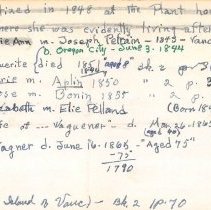 tized in 1848 at the Plant hom
here she was evidently living after
lie Ann m. Joseph Peltain — 1845 — Vanc
b. Oregon City - June 3. 1844
uerite (died 1851 "aged 8" Bk 2 p. 3
rie m. Aplin 1850 " 2 p. 3
ese m. Bonin 1855 " 2 p.
zabeth m. Elie Pelland (Born 184
te at --- Vaguener" d. Mar. 26-1865
(aged 40)
agner d. June 16-1865 - "Aged 75"
-75
1790
Island B Vanc) - Bk. 2 p. 70